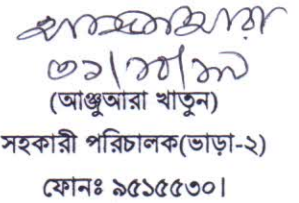 ৩১/১০/১৯
(আঞ্জুআরা খাতুন)
সহকারী পরিচালক(ভাড়া-২)
ফোনঃ ৯৫১৫৫৩০।